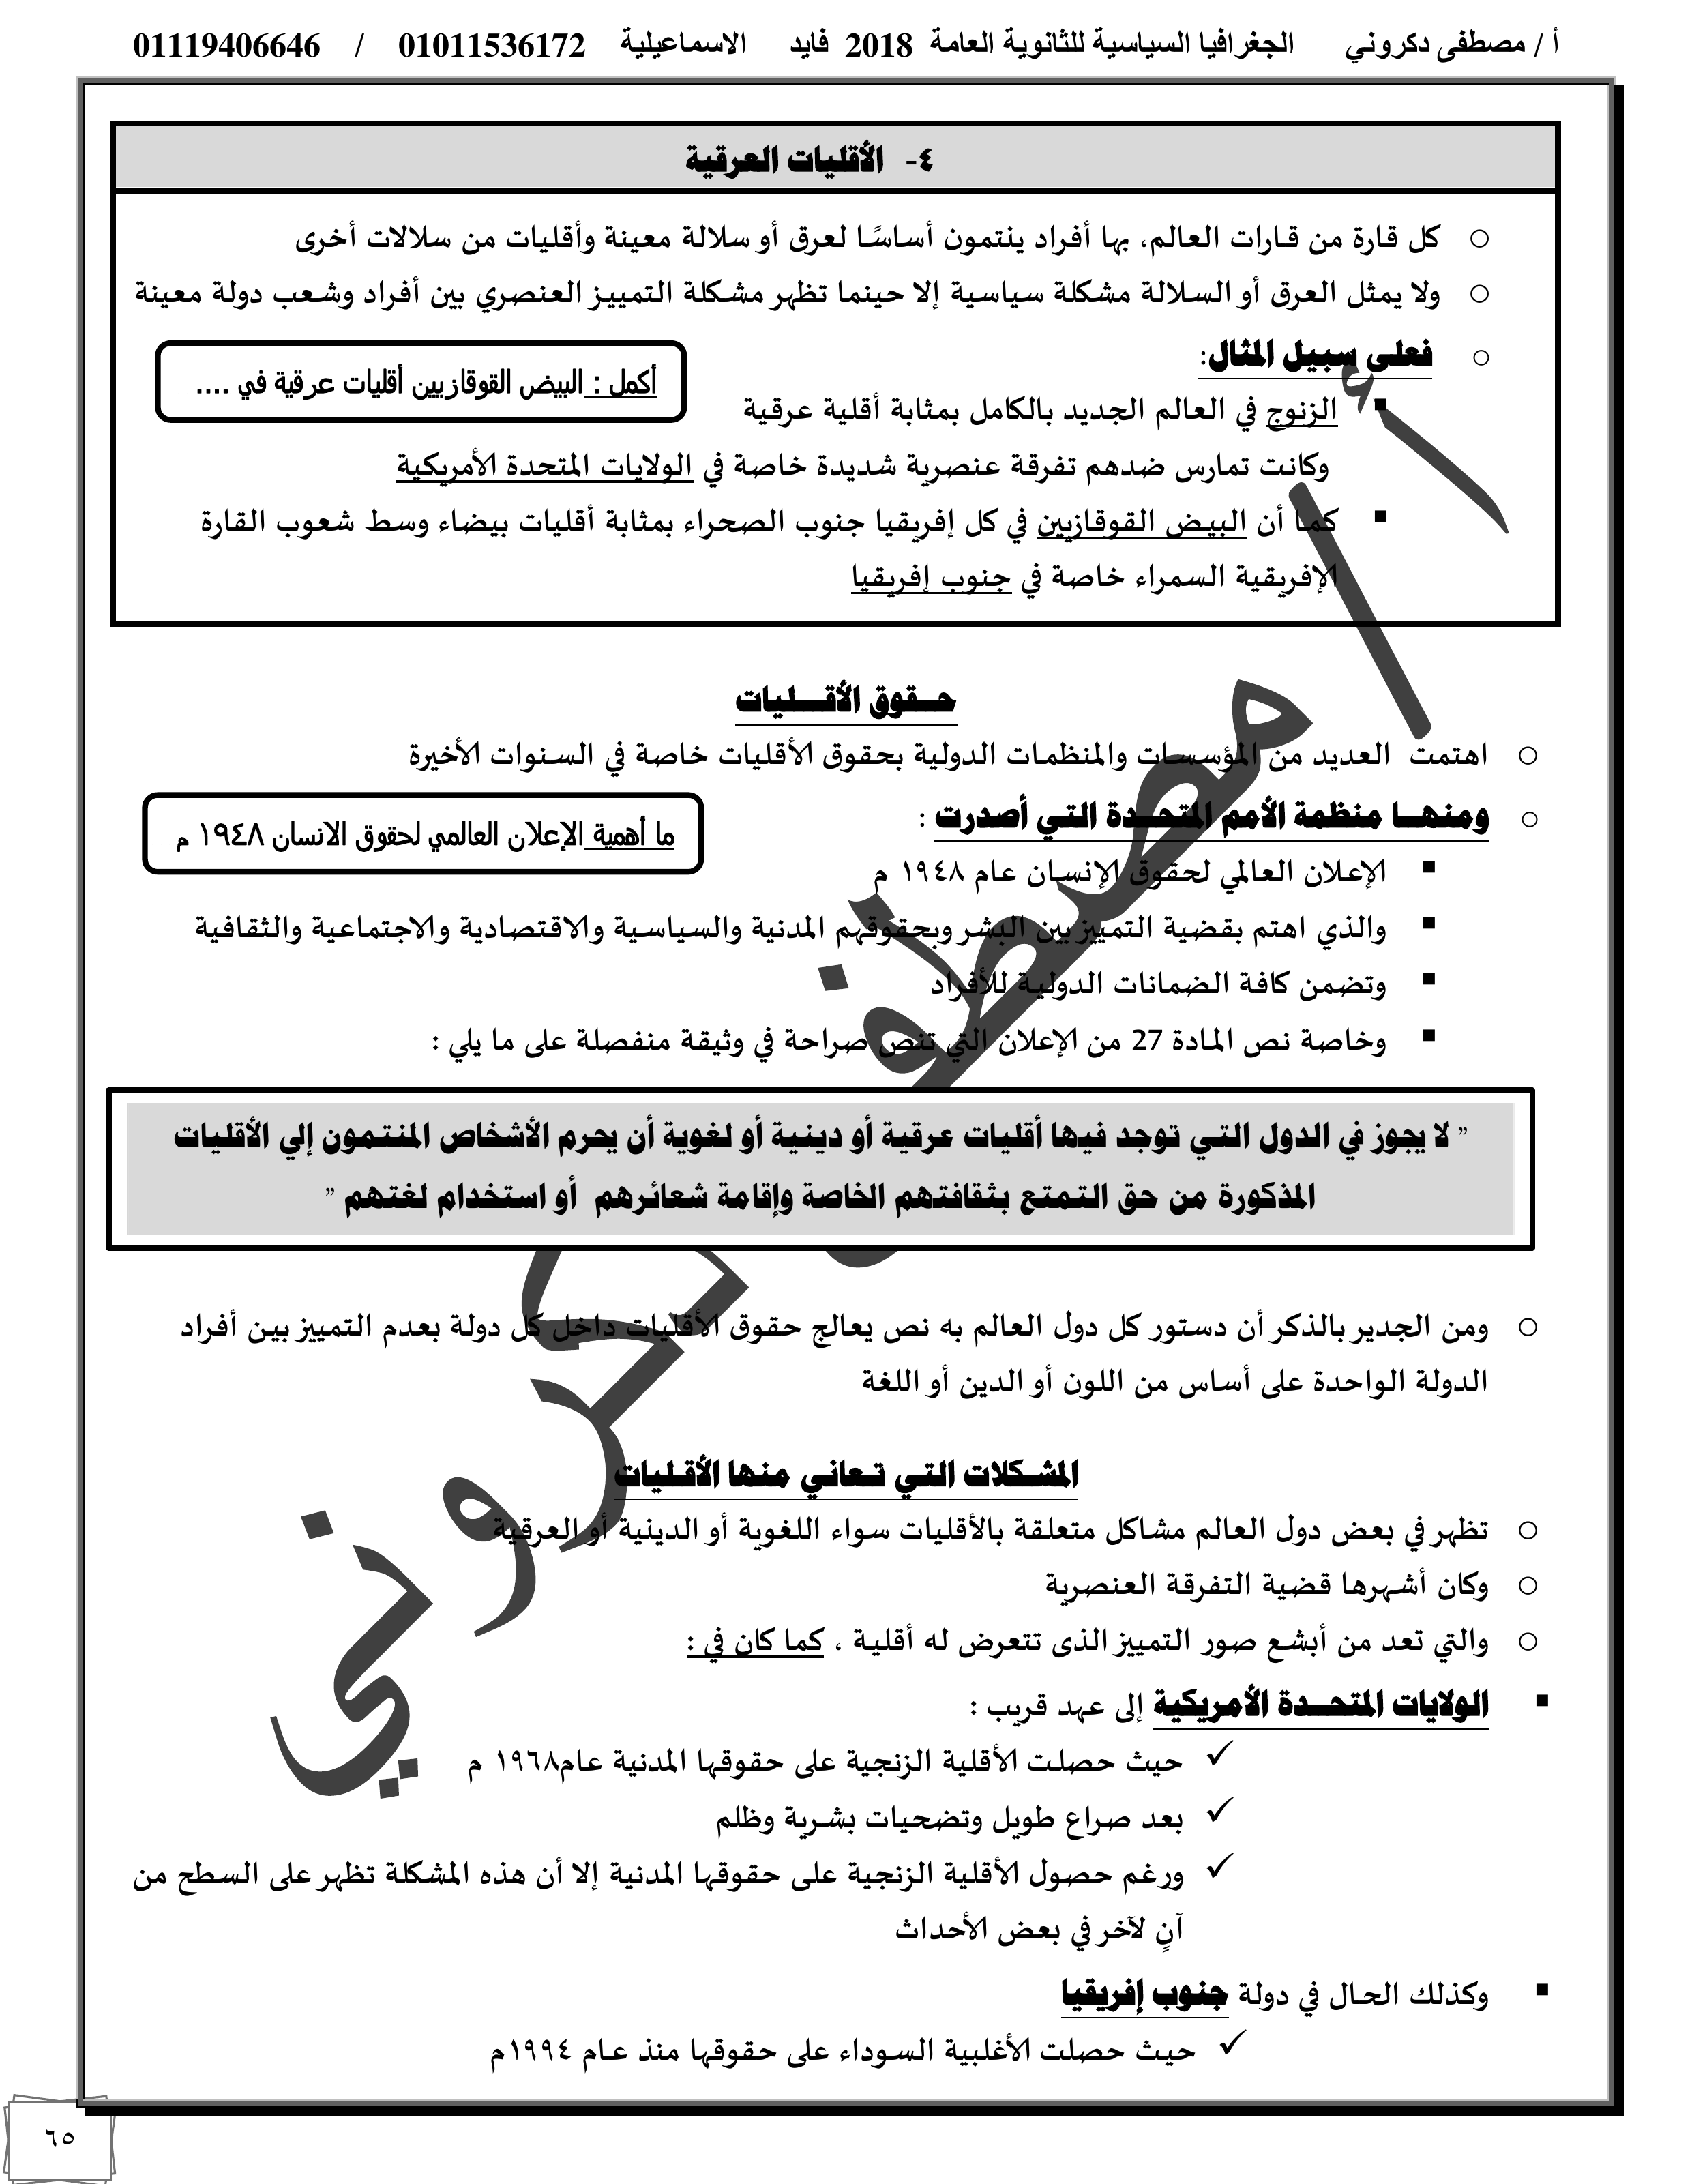 أ / مصطفى دكروني الجغرافيا السياسية للثانوية العامة 2018 فايد الاسماعيلية 01011536172 / 01119406646
٤- الأقليات العرقية
كل قارة من قارات العالم، بها أفراد ينتمون أساسًا لعرق أو سلالة معينة وأقليات من سلالات أخرى
ولا يمثل العرق أو السلالة مشكلة سياسية إلا حينما تظهر مشكلة التمييز العنصري بين أفراد وشعب دولة معينة
فعلى سبيل المثال:
أكمل : البيض القوقازيين أقليات عرقية في ....
الزنوج في العالم الجديد بالكامل بمثابة أقلية عرقية
وكانت تمارس ضدهم تفرقة عنصرية شديدة خاصة في الولايات المتحدة الأمريكية
كما أن البيض القوقازيين في كل إفريقيا جنوب الصحراء بمثابة أقليات بيضاء وسط شعوب القارة
الإفريقية السمراء خاصة في جنوب إفريقيا
حقوق الأقليات
اهتمت العديد من المؤسسات والمنظمات الدولية بحقوق الأقليات خاصة في السنوات الأخيرة
ومنها منظمة الأمم المتحدة التي أصدرت :
ما أهمية الإعلان العالمي لحقوق الانسان ١٩٤٨ م
الإعلان العالمي لحقوق الإنسان عام ١٩٤٨ م
والذي اهتم بقضية التمييز بين البشر وبحقوقهم المدنية والسياسية والاقتصادية والاجتماعية والثقافية
وتضمن كافة الضمانات الدولية للأفراد
وخاصة نص المادة 27 من الإعلان التي تنص صراحة في وثيقة منفصلة على ما يلي :
" لا يجوز في الدول التي توجد فيها أقليات عرقية أو دينية أو لغوية أن يحرم الأشخاص المنتمون إلي الأقليات
المذكورة من حق التمتع بثقافتهم الخاصة وإقامة شعائرهم أو استخدام لغتهم "
ومن الجدير بالذكر أن دستور كل دول العالم به نص يعالج حقوق الأقليات داخل كل دولة بعدم التمييز بين أفراد
الدولة الواحدة على أساس من اللون أو الدين أو اللغة
المشكلات التي تعاني منها الأقليات
تظهر في بعض دول العالم مشاكل متعلقة بالأقليات سواء اللغوية أو الدينية أو العرقية
وكان أشهرها قضية التفرقة العنصرية
والتي تعد من أبشع صور التمييز الذى تتعرض له أقلية ، كما كان في :
الولايات المتحدة الأمريكية إلى عهد قريب :
حيث حصلت الأقلية الزنجية على حقوقها المدنية عام١٩٦٨ م
بعد صراع طويل وتضحيات بشرية وظلم
ورغم حصول الأقلية الزنجية على حقوقها المدنية إلا أن هذه المشكلة تظهر على السطح من
آنٍ لآخر في بعض الأحداث
وكذلك الحال في دولة جنوب إفريقيا
حيث حصلت الأغلبية السوداء على حقوقها منذ عام ١٩٩٤م
٦٥
أ / مصطفى دكروني